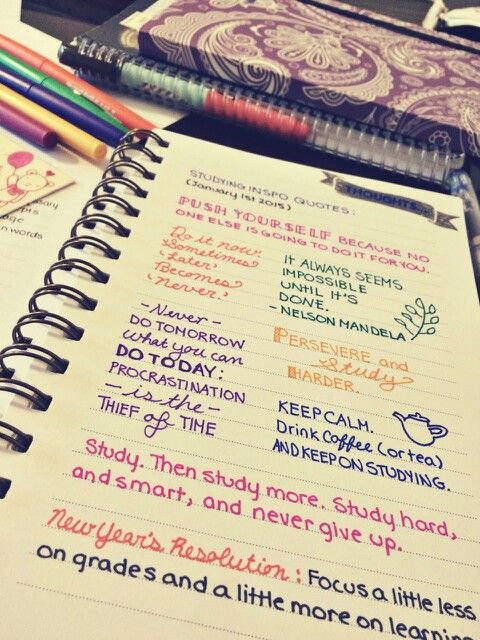 THOUGHTS...
STUDYING INSPO QUOTES:
(January 1st 2015)
PUSH YOURSELF BECAUSE NO
ONE ELSE IS GOING TO DO IT FOR YOU.
Do it now.
Sometimes
'Later'
Becomes
'never.'
IT ALWAYS SEEMS
IMPOSSIBLE
UNTIL IT'S
DONE.
- NELSON MANDELA
- Never -
DO TOMORROW
what you can
DO TODAY:
PROCRASTINATION
- is the -
THIEF of TIME
PERSEVERE and
Study
HARDER.
KEEP CALM.
Drink Coffee (or tea)
AND KEEP ON STUDYING.
Study. Then study more. Study hard,
and smart, and never give up.
New Year's Resolution: Focus a little less
on grades and a little more on learning
words